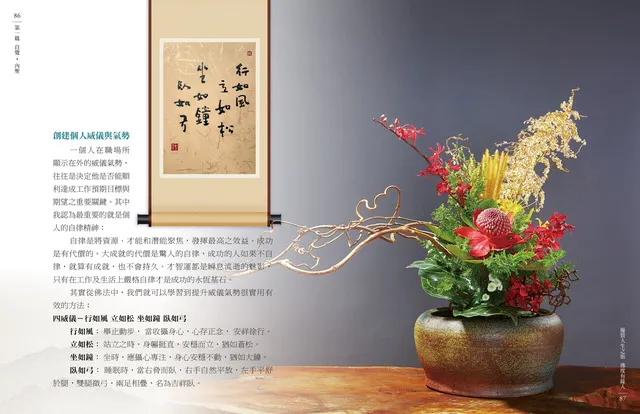 86
第一篇 自覺・內聖
行如風
立如松
坐如鐘
臥如弓
創建個人威儀與氣勢
一個人在職場所
顯示在外的威儀氣勢，
往往是決定他是否能順
利達成工作預期目標與
期望之重要關鍵。其中
我認為最重要的就是個
人的自律精神：
自律是將資源、才能和潛能聚焦，發揮最高之效益。成功
是有代價的。大成就的代價是驚人的自律，成功的人如果不自
律，就算有成就，也不會持久。才智運都是瞬息流逝的魅影，
只有在工作及生活上嚴格自律才是成功的永恆基石。
其實從佛法中，我們就可以學習到提升威儀氣勢很實用有
效的方法：
四威儀－行如風 立如松 坐如鐘 臥如弓
行如風： 舉止動步， 當收攝身心，心存正念， 安祥徐行。
立如松： 站立之時，身軀挺直，安穩而立，猶如蒼松。
坐如鐘： 坐時，應攝心專注，身心安穩不動，猶如大鐘。
臥如弓： 睡眠時，當右脅而臥，右手自然平放，左手平舒
於腿，雙腿微弓，兩足相疊，名為吉祥臥。
擁預人生之歌 傳度有緣人
87